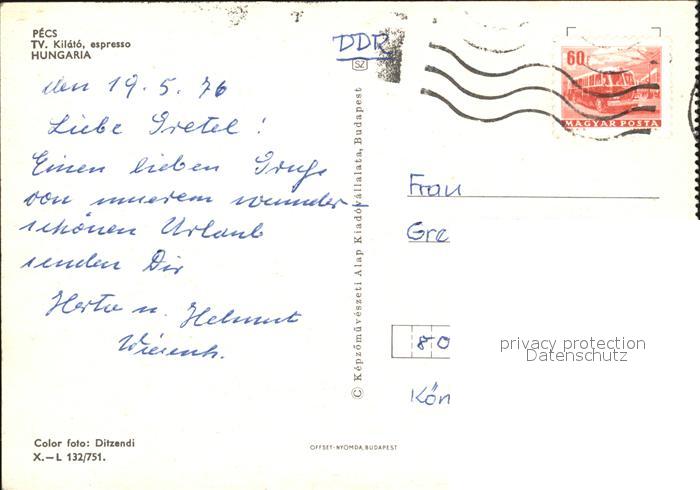 PÉCS
TV. Kilátó, espresso
HUNGARIA
DDR
SZ
60f
MAGYAR POSTA
den 19. 5. 76
Liebe Gretel!
Einen lieben Gruß
von unserem wunder-
schönen Urlaub
senden Dir
Herta u. Helmut
© Képzőművészeti Alap Kiadóvállalata, Budapest
Frau
Gre
80
Kön
privacy protection
Datenschutz
Color foto: Ditzendi
X.–L 132/751.
OFFSET-NYOMDA, BUDAPEST